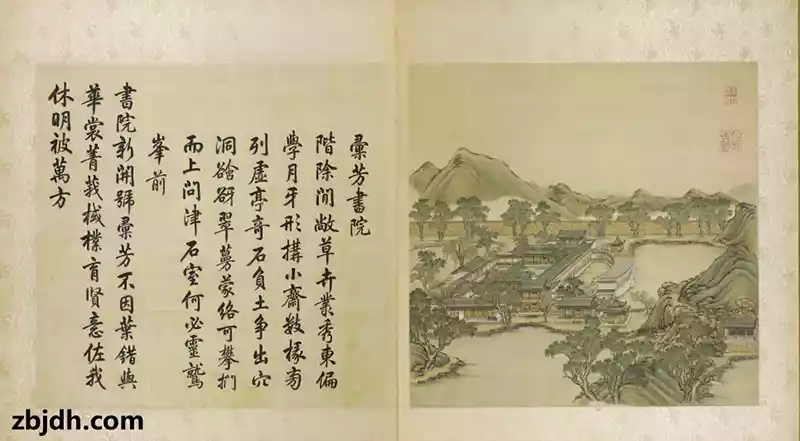 彙芳書院
階除閒敞草卉叢秀東偏
學月牙形搆小齋數椽旁
列虛亭奇石負土爭出穴
洞谽谺翠蔓蒙絡可攀捫
而上問津石室何必靈鷲
峯前
書院新開號彙芳不因葉錯與
華裳菁莪棫樸育賢意佐我
休明被萬方
zbjdh.com